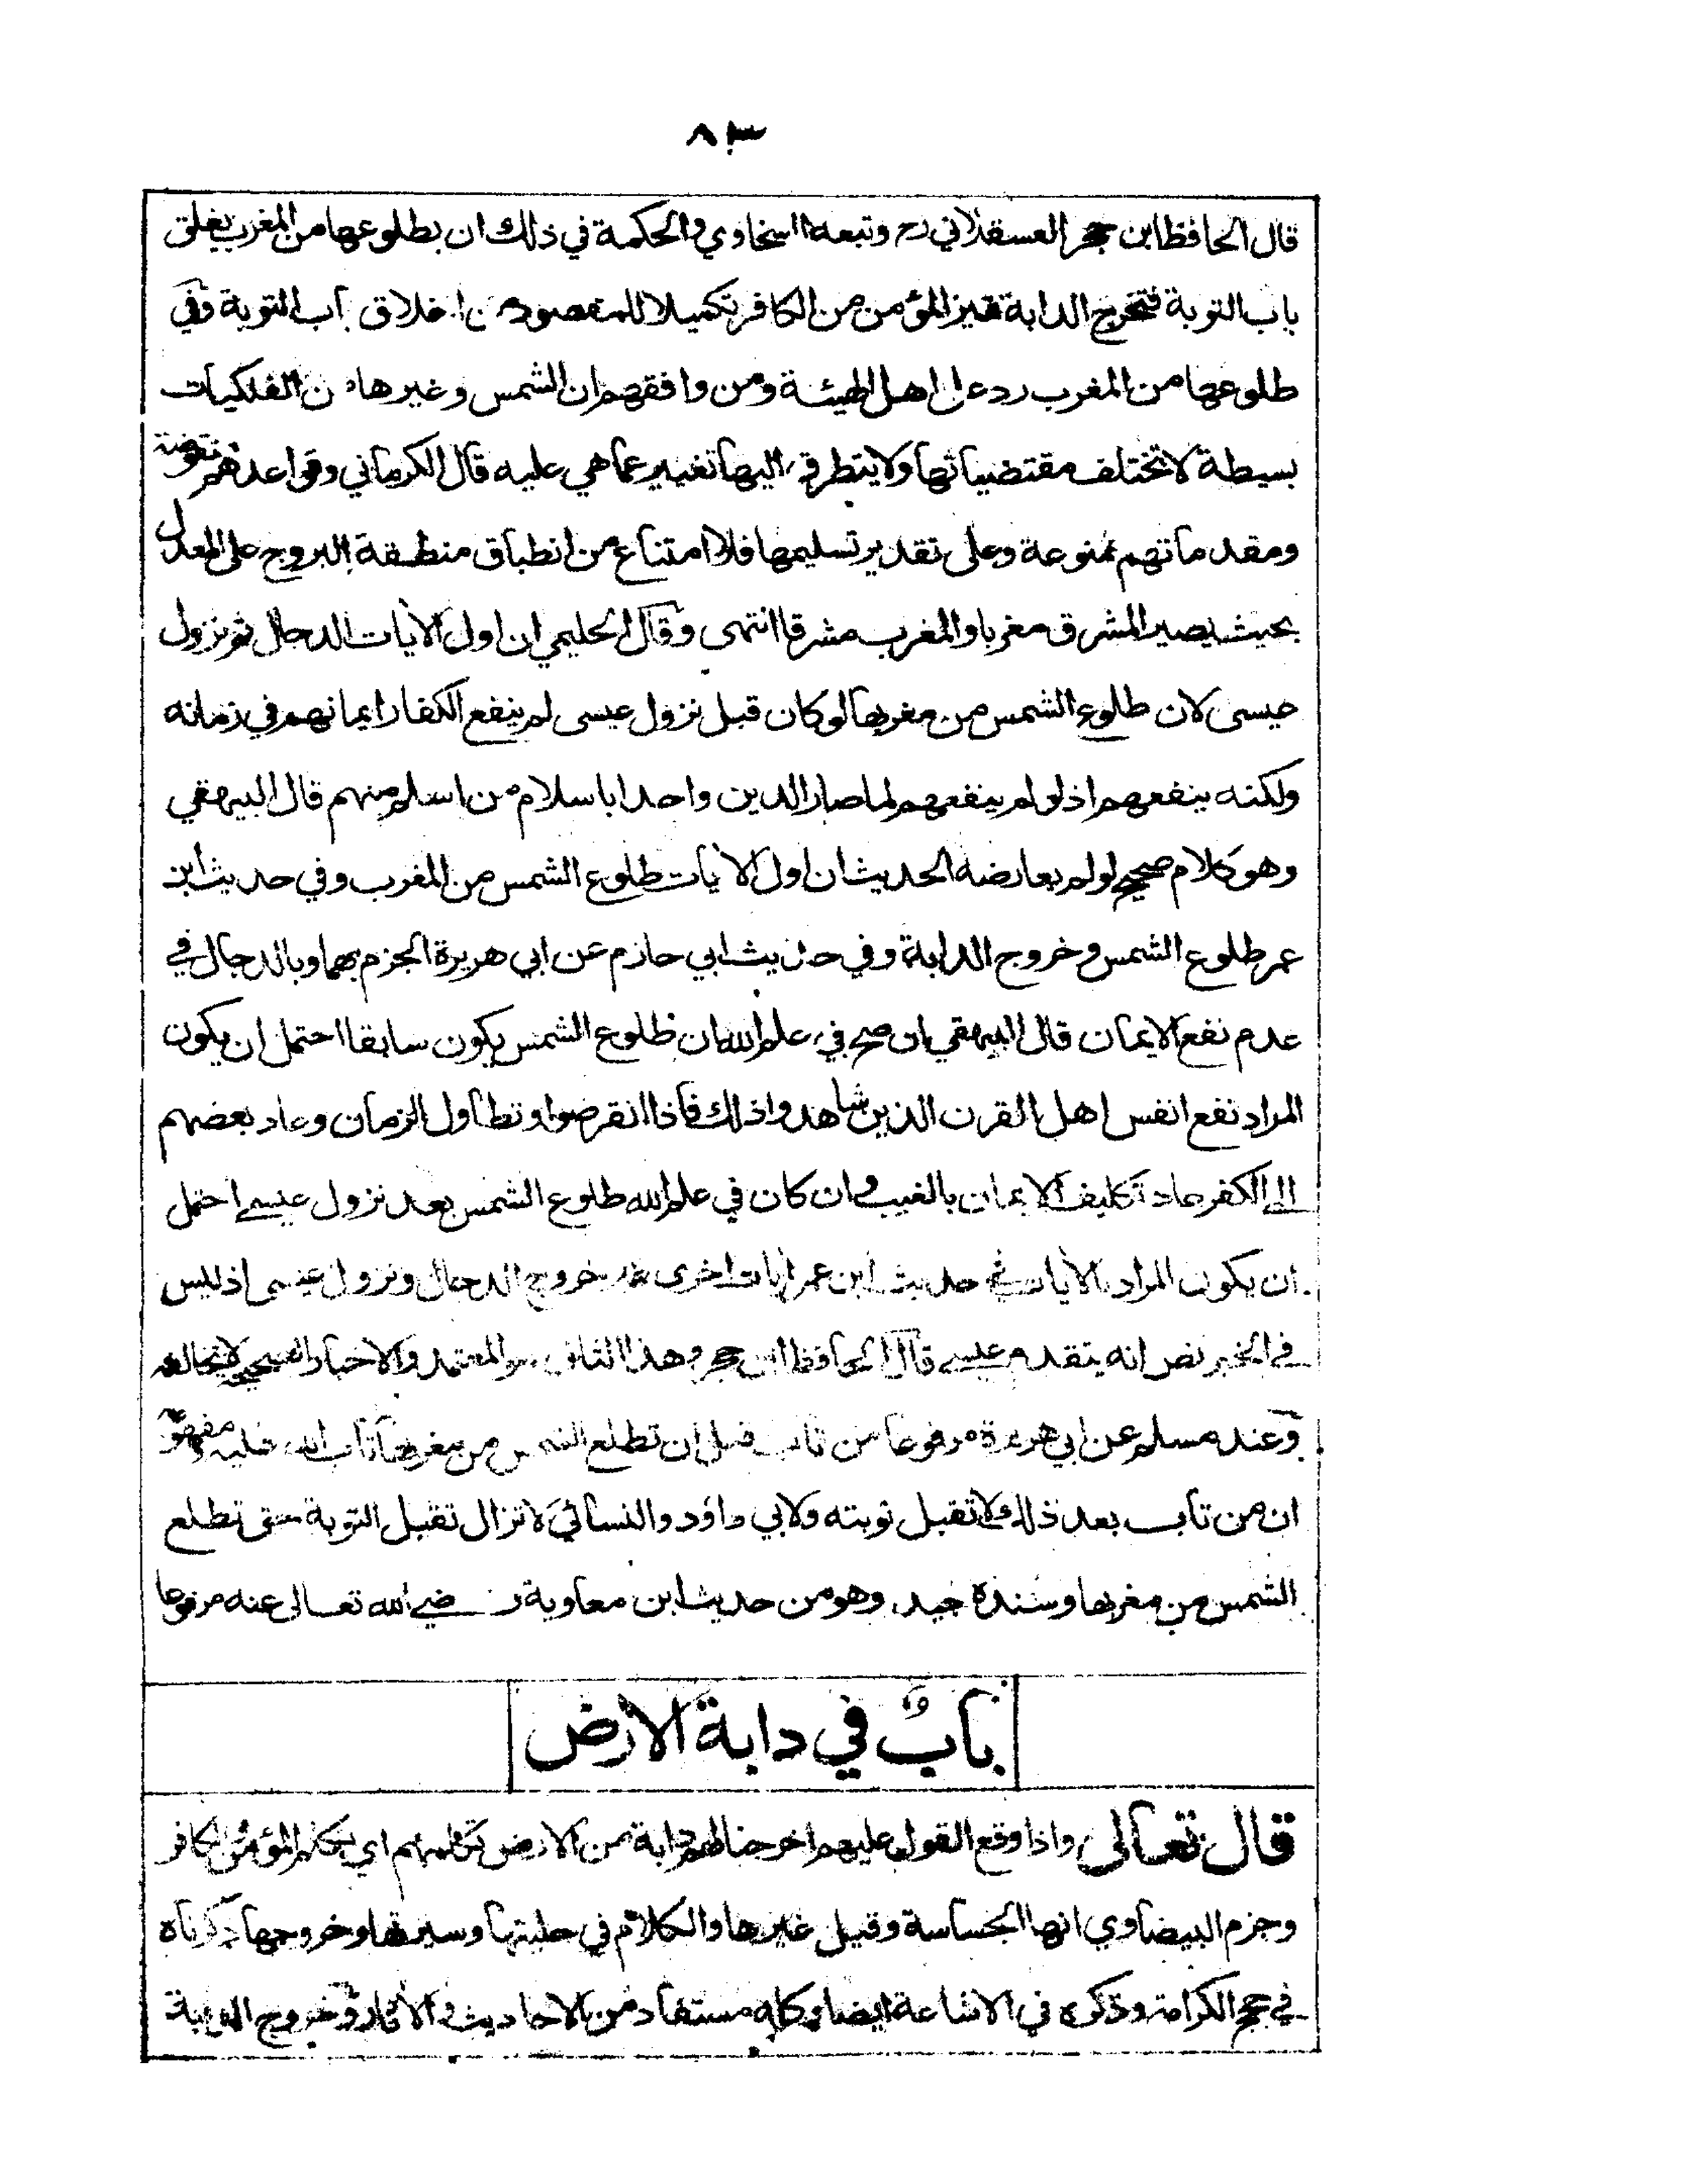 ٨٣
قال الحافظ ابن حجر العسقلاني رح وتبعه السخاوي والحكمة في ذلك ان بطلوعها من المغرب يغلق
باب التوبة فتخرج الدابة تميز المؤمن من الكافر تكميلا للمقصود من اغلاق باب التوبة وفي
طلوعها من المغرب رد على اهل الهيئة ومن وافقهم ان الشمس وغيرها من الفلكيات
بسيطة لا تختلف مقتضياتها ولا يتطرق اليها تغيير عما هي عليه قال الكرماني وقواعدهم منقوضة
ومقدماتهم ممنوعة وعلى تقدير تسليمها فلا امتناع من انطباق منطقة البروج على المعدل
بحيث يصير المشرق مغربا والمغرب مشرقا انتهى وقال الحليمي ان اول الآيات الدجال ثم نزول
عيسى لان طلوع الشمس من مغربها لو كان قبل نزول عيسى لم ينفع الكفار ايمانهم في زمانه
ولكنه ينفعهم اذ لو لم ينفعهم لما صار الدين واحدا باسلام من اسلم منهم قال البيهقي
وهو كلام صحيح لو لم يعارضه الحديث ان اول الآيات طلوع الشمس من المغرب وفي حديث ابن
عمر طلوع الشمس وخروج الدابة وفي حديث ابي حازم عن ابي هريرة الجزم بهما وبالدجال في
عدم نفع الايمان قال البيهقي ان صح في علم الله ان طلوع الشمس يكون سابقا احتمل ان يكون
المراد نفع انفس اهل القرن الذين شاهدوا ذلك فاذا انقرضوا وتطاول الزمان وعاد بعضهم
الى الكفر عاد تكليف الايمان بالغيب وان كان في علم الله طلوع الشمس بعد نزول عيسى احتمل
ان يكون المراد بالآيات في حديث ابن عمر ايات اخرى غير خروج الدجال ونزول عيسى اذ ليس
في الخبر نص انه يتقدم عيسى قال الحافظ ابن حجر وهذا الثاني هو المعتمد والاخبار الصحيحة لا تخالفه
وعند مسلم عن ابي هريرة مرفوعا من تاب قبل ان تطلع الشمس من مغربها تاب الله عليه ومفهومه
ان من تاب بعد ذلك لا تقبل توبته ولابي داؤد والنسائي لا تزال تقبل التوبة حتى تطلع
الشمس من مغربها وسنده جيد وهو من حديث ابن معاوية رضي الله تعالى عنه مرفوعا
باب في دابة الارض
قال تعالى واذا وقع القول عليهم اخرجنا لهم دابة من الارض تكلمهم اي تكلم المؤمن والكافر
وجزم البيضاوي انها الجساسة وقيل غيرها والكلام في حليتها وسيرتها وخروجها ذكرناه
في حجج الكرامة وذكره في الاشاعة ايضا وكله مستفاد من الاحاديث والآثار وخروج الدابة